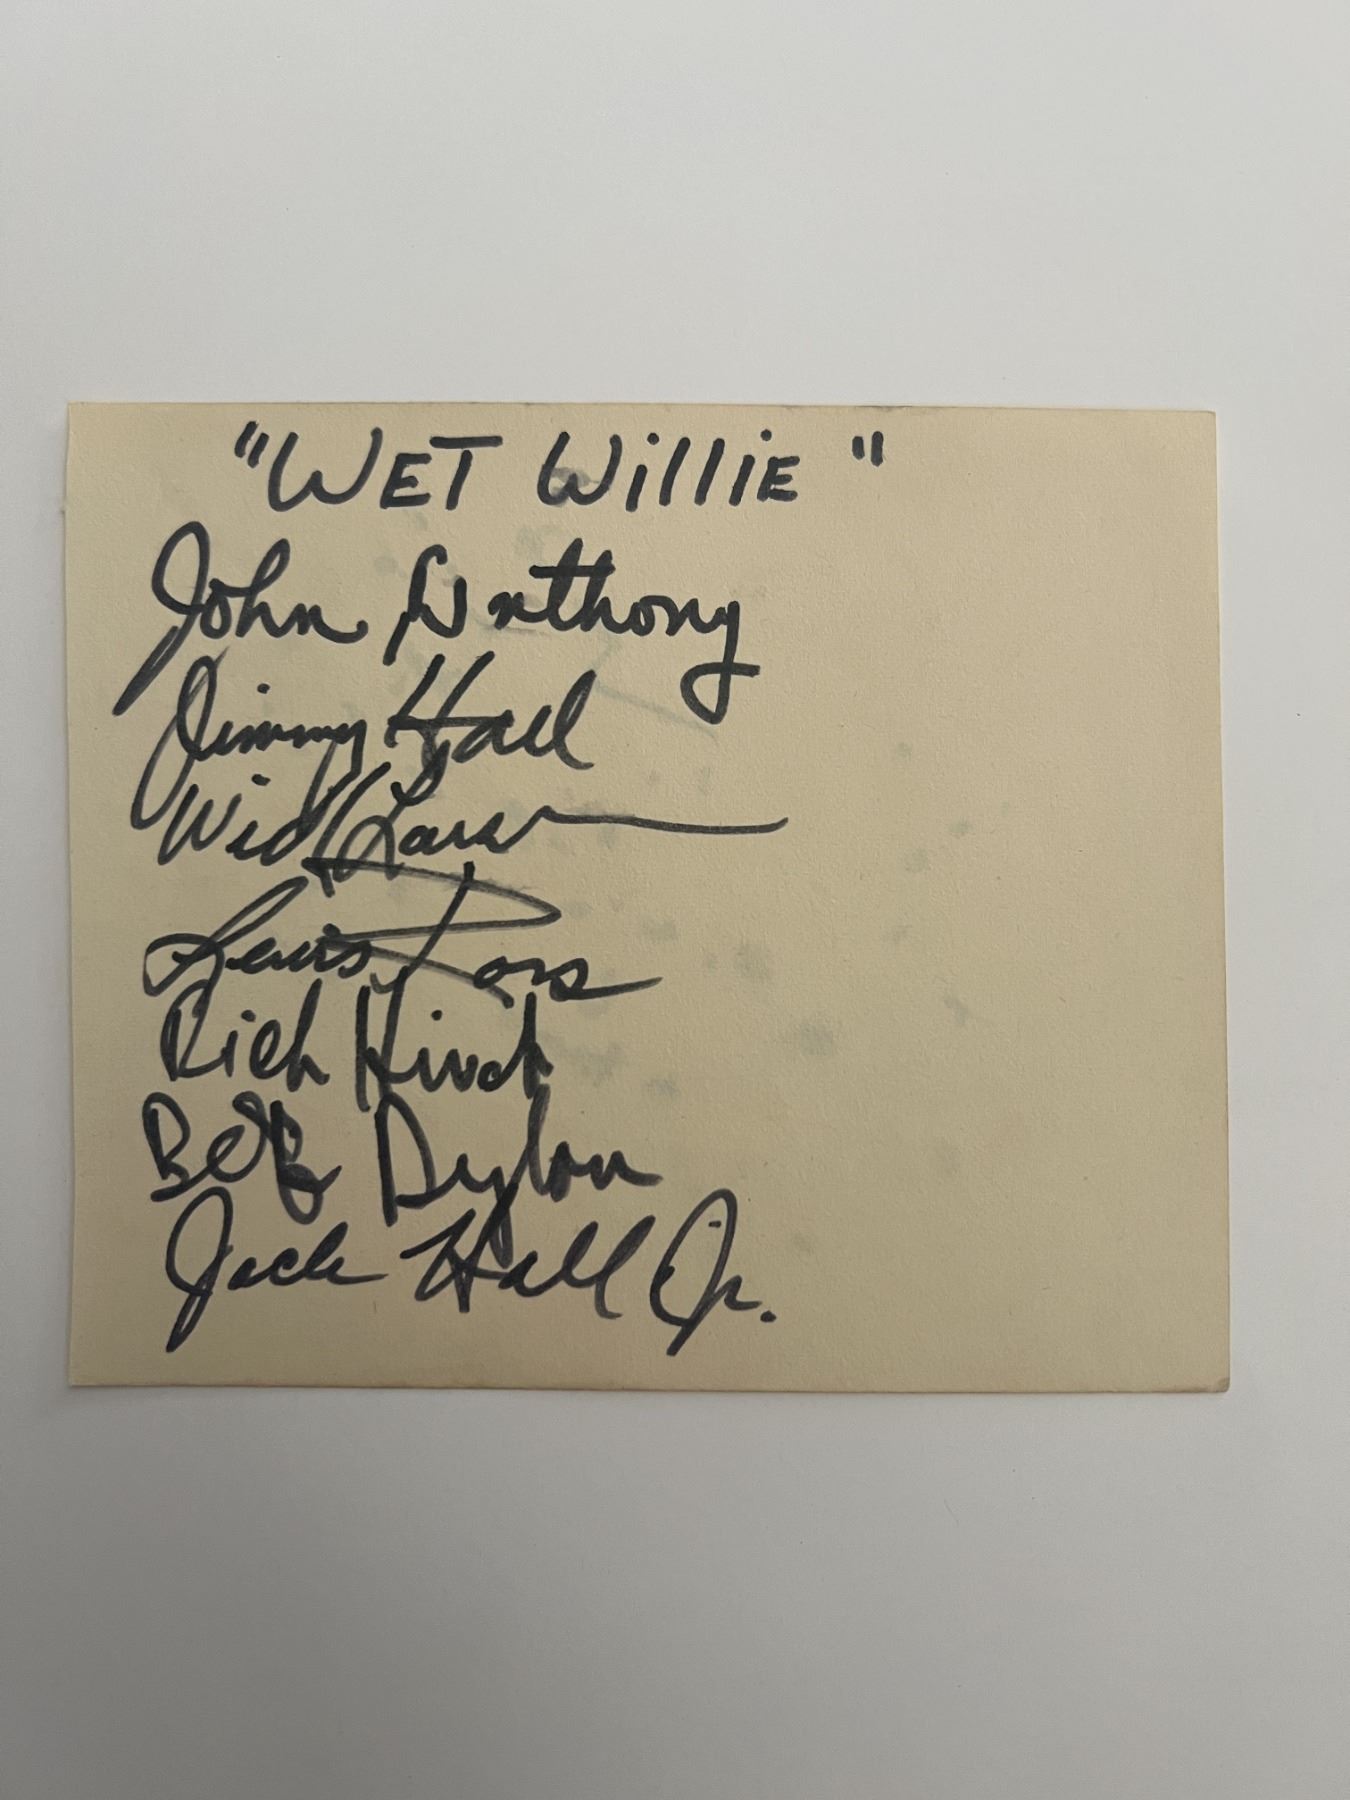 "WET WilliE"
John Anthony
Jimmy Hall
Wick Larsen
Lewis Ross
Rich Hirsch
Bob Dylan
Jack Hall Jr.